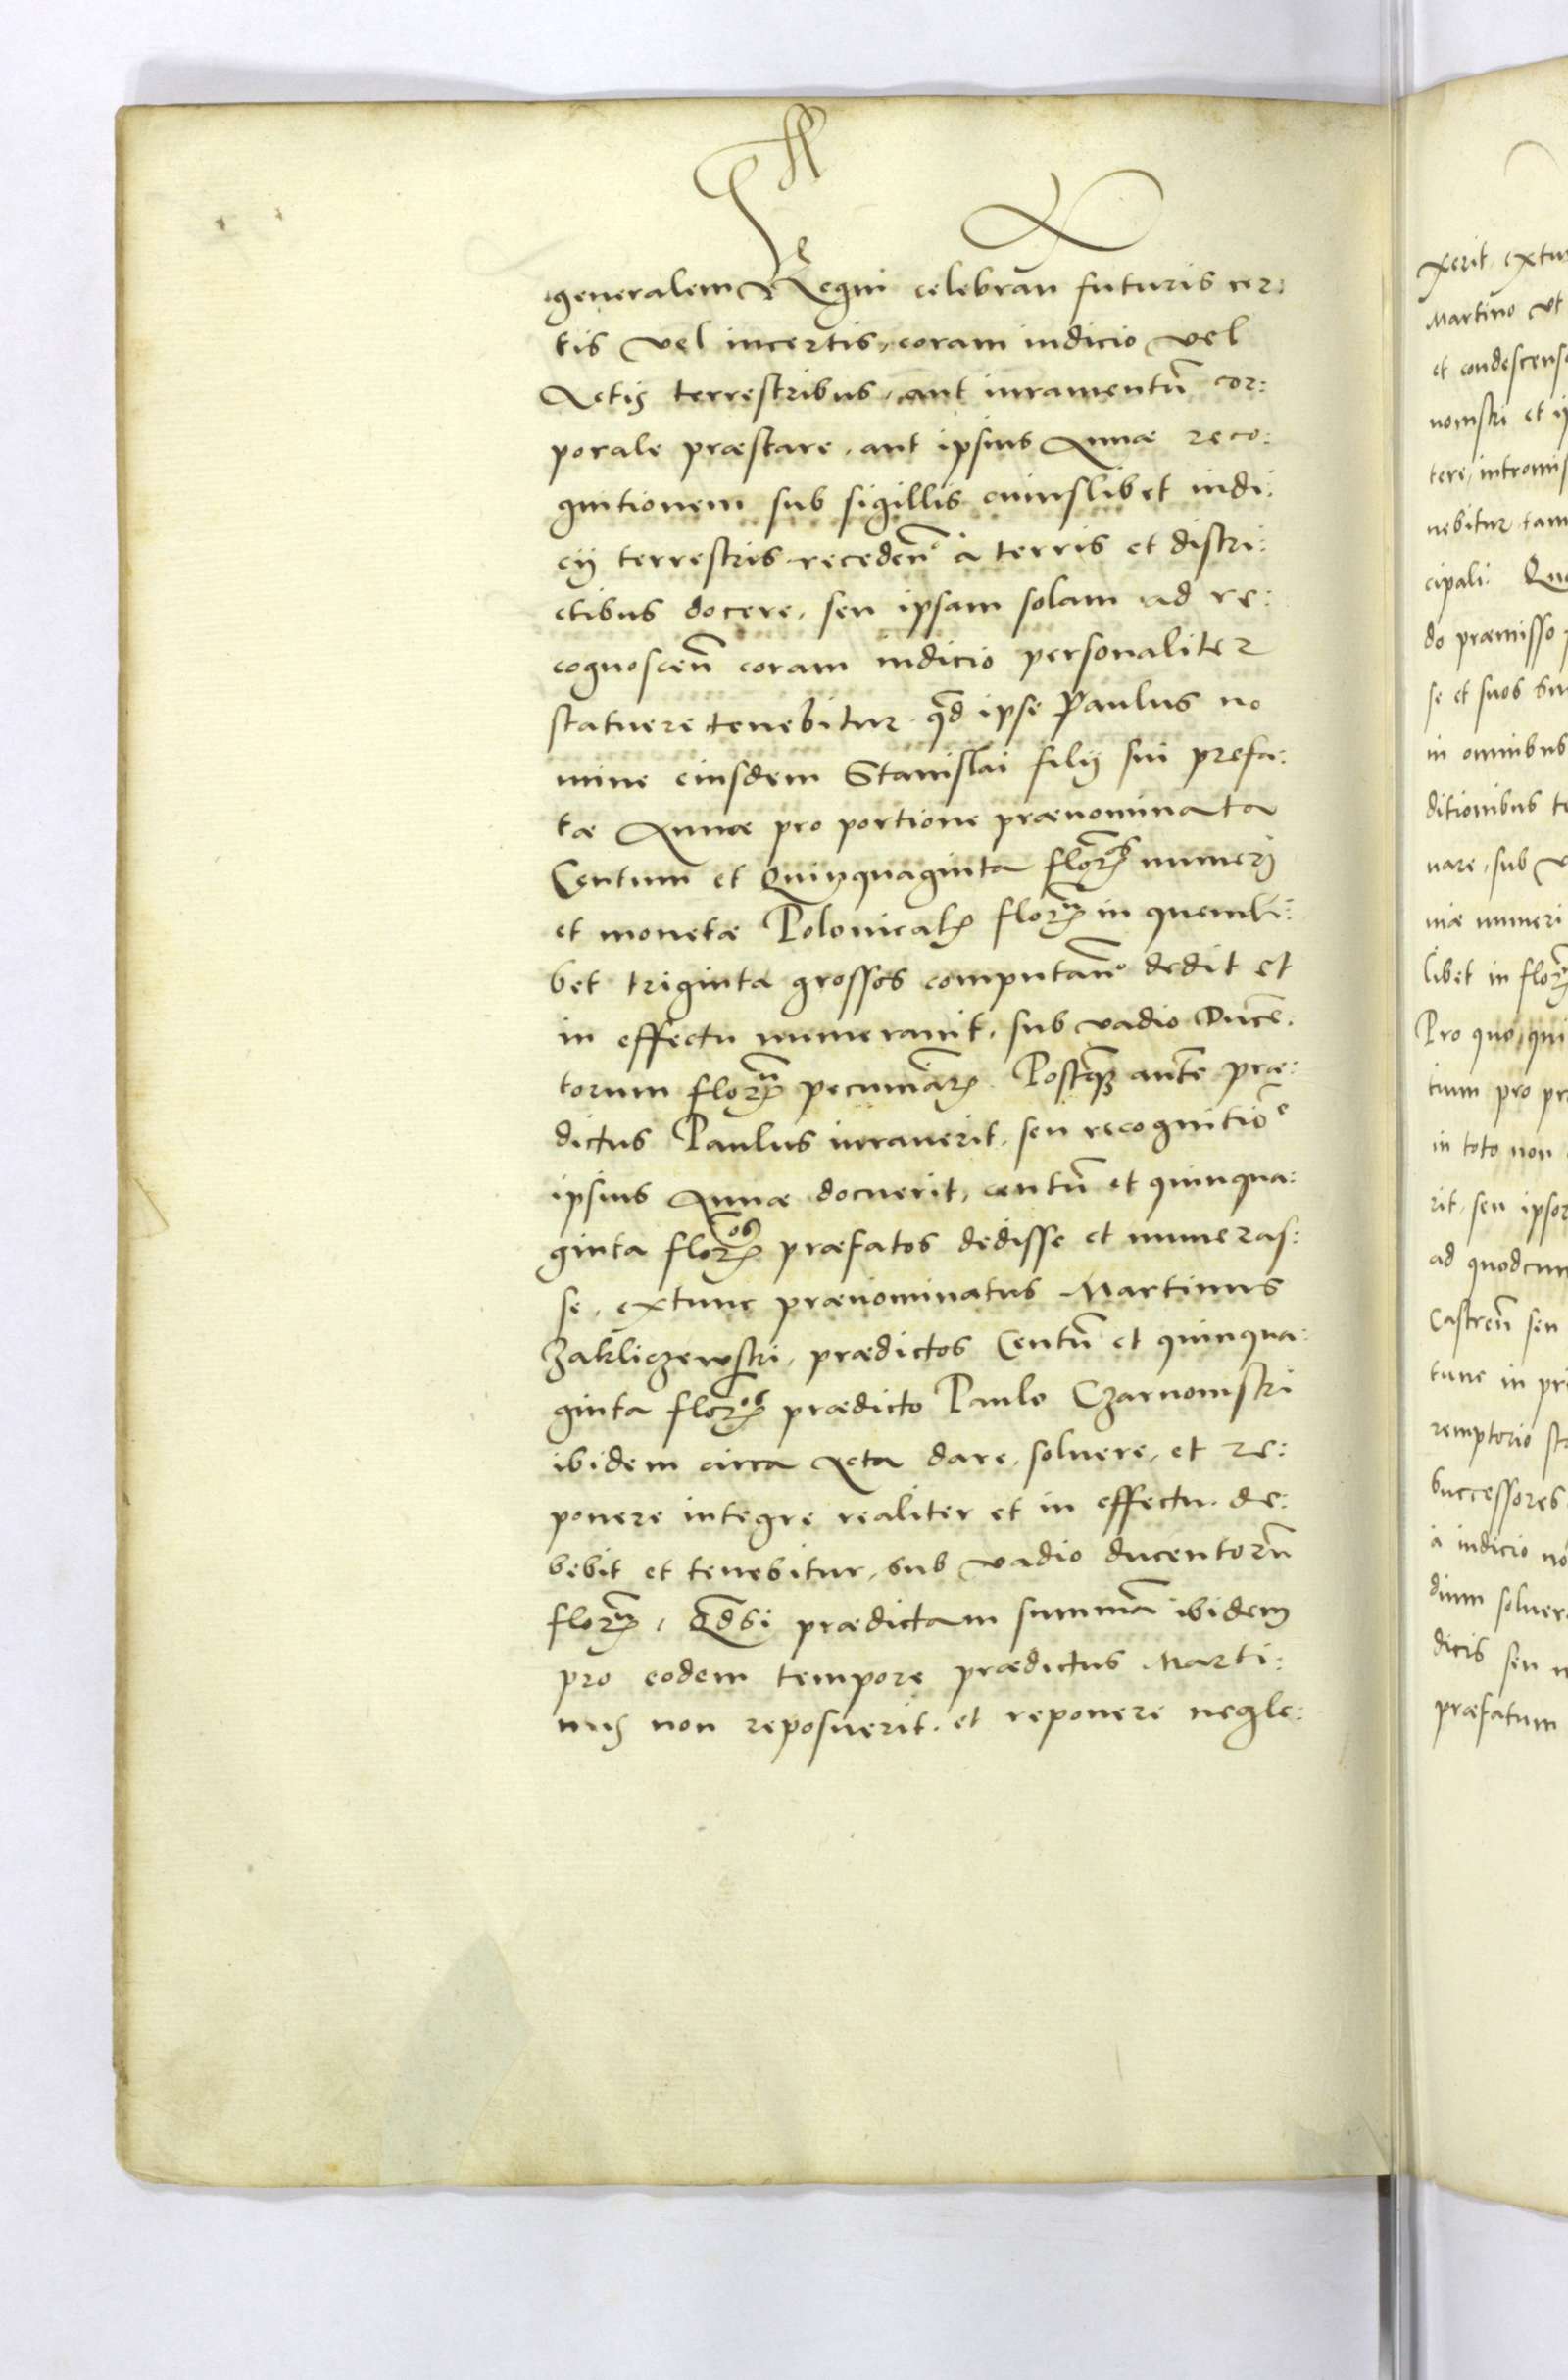 generalem Regni celebran̄ futuris cer:
tis vel incertis, coram iudicio vel
Actis terrestribus, aut iuramentū cor:
porale præstare, aut ipsius Annæ reco:
gnitionem sub sigillis cuiuslibet iudi:
cij terrestris recedeñ à terris et distri:
ctibus docere, seu ipsam solam ad re:
cognosceñ coram iudicio personaliter
statuere tenebitur. q̄d ipse Paulus no
mine eiusdem Stanislai filij sui prefa:
tæ Annæ pro portione prænominata
Centum et Quinquaginta floŕos numeri
et monetæ Polonicalꝭ florꝭ in quemli:
bet triginta grossos computañ dedit et
in effectu numerauit, sub vadio Ducē:
torum florꝭ pecuniārꝭ. Postq̄ꝫ autē præ:
dictus Paulus iurauerit, seu recognitioē
ipsius Annæ docuerit, centū et quinqua:
ginta floros præfatos dedisse et numeras:
se, extunc prænominatus Martinus
Zakliczewski, prædictos Centū et quinqua:
ginta floros prædicto Paulo Czarnomski
ibidem circa Acta dare, soluere, et re:
ponere integre realiter et in effectu de:
bebit et tenebitur, sub vadio ducentorū
florꝭ, Qd̄ si prædictam summā ibidem
pro eodem tempore prædictus Marti:
nus non reposuerit, et reponere negle:
xerit, extun
Martino vt
et condescens
nomski et ip
tere, intromis
nebitur tam
cipali. Quo
do præmisso
se et suos su
in omnibus
ditionibus te
nare, sub v
niæ numeri
libet in flor
Pro quo, qui
tium pro pr
in toto non
rit, seu ipsor
ad quodcun
Castreñ seu
tunc in pr
remptorio st
successores
à iudicio no
dium soluer
dicis seu n
præfatum